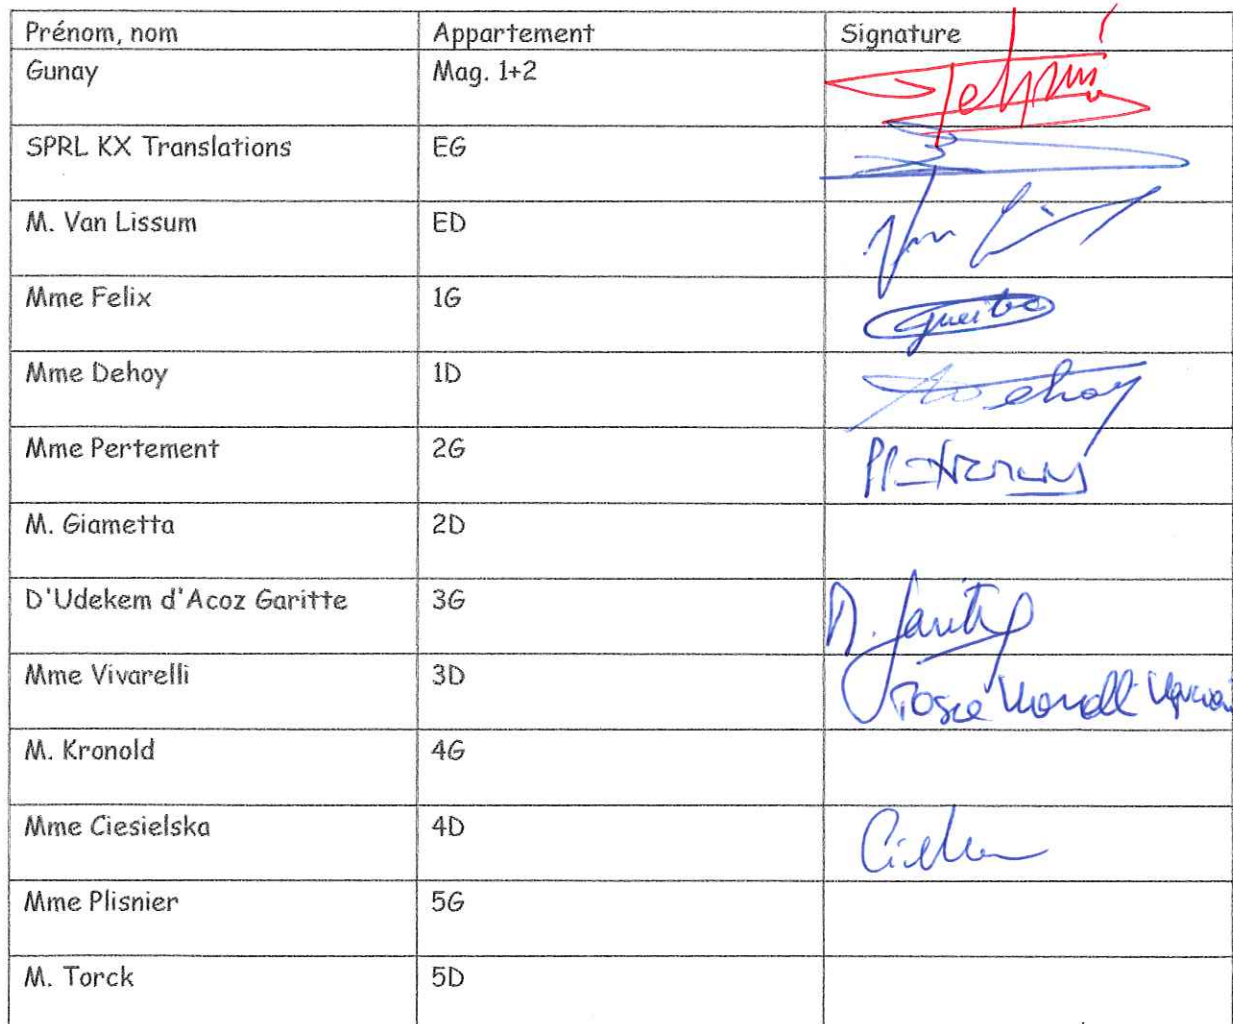 Prénom, nom Appartement Signature
Gunay Mag. 1+2
SPRL KX Translations EG
M. Van Lissum ED
Mme Felix 1G
Mme Dehoy 1D Dehoy
Mme Pertement 2G
M. Giametta 2D
D'Udekem d'Acoz Garitte 3G
Mme Vivarelli 3D
M. Kronold 4G
Mme Ciesielska 4D
Mme Plisnier 5G
M. Torck 5D